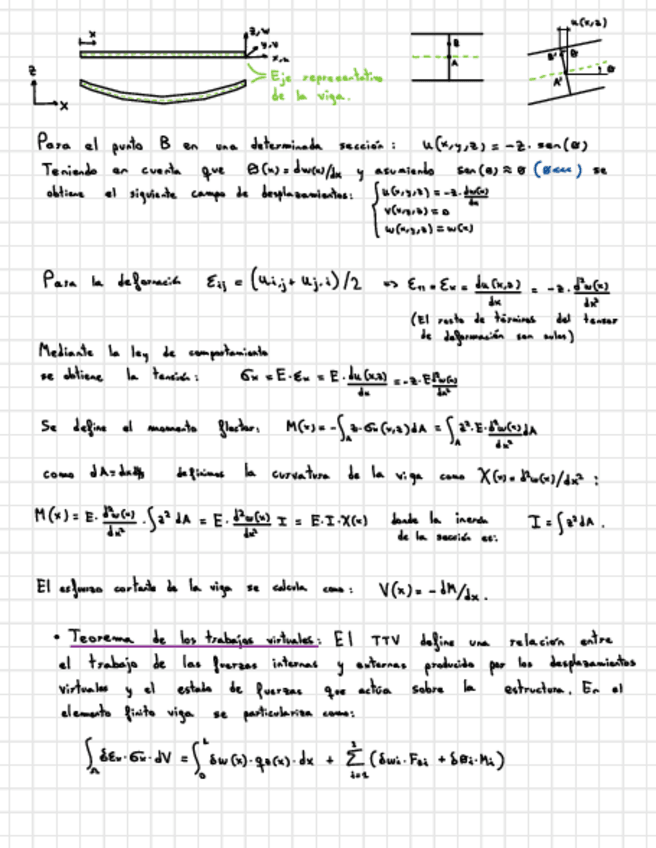 x
z,w
y,v
x,u
z
x
Eje representativo
de la viga.
B
A
u(x,z)
B'
θ
A'
θ
Para el punto B en una determinada sección: u(x,y,z) = -z·sen(θ)
Teniendo en cuenta que θ(x) = dw(x)/dx y asumiendo sen(θ) ≈ θ (θ<<<) se
obtiene el siguiente campo de desplazamientos: u(x,y,z) = -z·dw(x)/dx
v(x,y,z) = 0
w(x,y,z) = w(x)
Para la deformación εij = (ui,j + uj,i)/2 => ε11 = εx = du(x,z)/dx = -z·d²w(x)/dx²
(El resto de términos del tensor
de deformación son nulos)
Mediante la ley de comportamiento
se obtiene la tensión: σx = E·εx = E·du(x,z)/dx = -z·E d²w(x)/dx²
Se define el momento flector: M(x) = -∫A z·σx(x,z)dA = ∫A z²·E·d²w(x)/dx² dA
como definimos la curvatura de la viga como χ(x) = d²w(x)/dx² :
M(x) = E·d²w(x)/dx² · ∫z² dA = E·d²w(x)/dx² I = E·I·χ(x) donde la inercia I = ∫z² dA.
de la sección es:
El esfuerzo cortante de la viga se calcula como: V(x) = -dM/dx.
• Teorema de los trabajos virtuales: El TTV define una relación entre
el trabajo de las fuerzas internas y externas producido por los desplazamientos
virtuales y el estado de fuerzas que actúa sobre la estructura. En el
elemento finito viga se particulariza como:
∫ δεx·σx·dV = ∫0L δw(x)·q(x)·dx + Σ i=1 2 (δwi·Fzi + δθi·Mi)